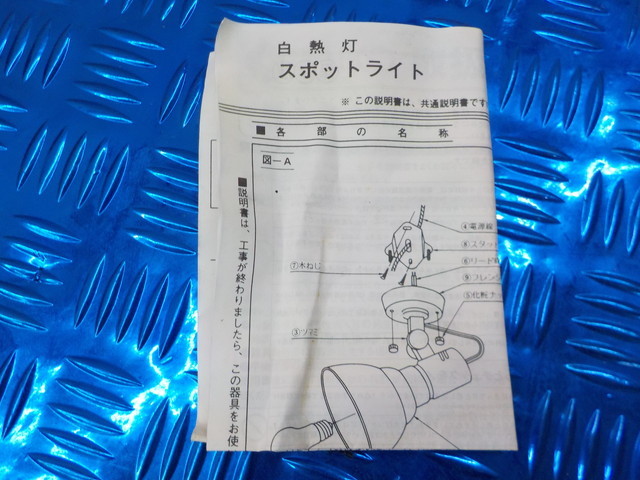 白熱灯
スポットライト
※ この説明書は、共通説明書です
■各部の名称
図-A
■説明書は、工事が終わりましたら、この器具をお使
④電源線
⑦木ねじ
⑨フレン
⑤化粧ナッ
③ツマミ